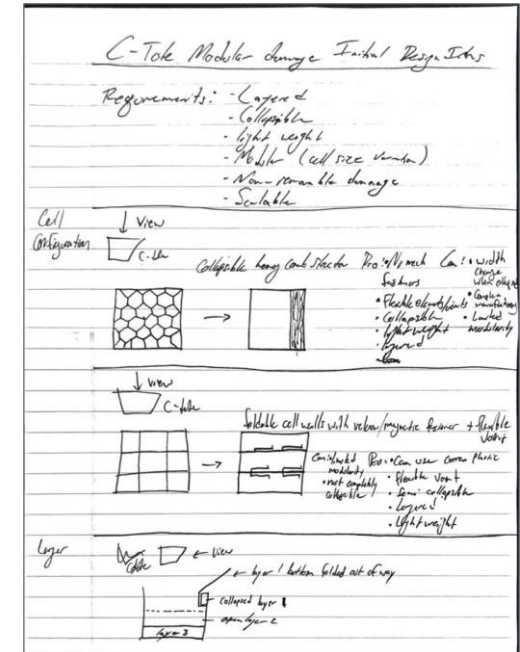 C-Tote Modular dunnage Initial Design Ideas
Requirements: - Layered
- Collapsible
- light weight
- Modular (cell size variation)
- Non-removable dunnage
- Scalable
Cell
Configuration
↓ View
C-tote
Collapsible honey comb structure
Pro: • No mech
fastners
• Flexible elements/joints
• Collapsible
• light weight
• layered
Con: • width
change
when collapsed
• Complex
manufacturing
• Limited
modularity
↓ View
C-tote
foldable cell walls with velcro/magnetic fastner + flexible
joint
Con: • limited
modularity
• not completely
collapsible
Pro: • Can use corex plastic
• flexible joint
• Semi-collapsible
• Layered
• Light weight
Layer
C-tote
← View
← layer 1 bottom folded out of way
← collapsed layer 1
open layer 2
layer 3